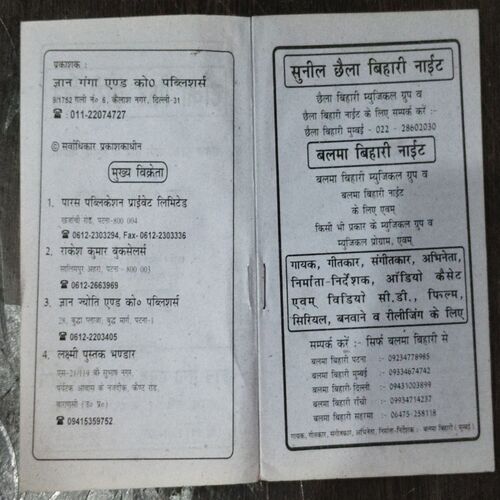 प्रकाशक :
ज्ञान गंगा एण्ड को० पब्लिशर्स
9/1752 गली नं० 6, कैलाश नगर, दिल्ली-31
☎ : 011-22074727
© सर्वाधिकार प्रकाशकाधीन
मुख्य विक्रेता
1. पारस पब्लिकेशन प्राईवेट लिमिटेड
खजांची रोड, पटना-800 004
☎ 0612-2303294, Fax- 0612-2303336
2. राकेश कुमार बुकसेलर्स
सालिमपुर अहरा, पटना - 800 003
☎ 0612-2663969
3. ज्ञान ज्योति एण्ड को० पब्लिशर्स
28, बुद्धा प्लाजा, बुद्ध मार्ग, पटना-1
☎ 0612-2203405
4. लक्ष्मी पुस्तक भण्डार
एस-21/119 बी सुभाष नगर,
पर्यटक आवास के नजदीक, कैण्ट रोड,
वाराणसी (उ० प्र०)
☎ 09415359752
सुनील छैला बिहारी नाईट
छैला बिहारी म्युजिकल ग्रुप व
छैला बिहारी नाईट के लिए सम्पर्क करें :-
छैला बिहारी मुम्बई - 022 - 28602030
बलमा बिहारी नाईट
बलमा बिहारी म्युजिकल ग्रुप व
बलमा बिहारी नाईट
के लिए एवम्
किसी भी प्रकार के म्युजिकल ग्रुप व
म्युजिकल प्रोग्राम, एवम्
गायक, गीतकार, संगीतकार, अभिनेता,
निर्माता-निर्देशक, ऑडियो कैसेट
एवम् विडियो सी.डी., फिल्म,
सिरियल, बनवाने व रीलीजिंग के लिए
सम्पर्क करें :- सिर्फ बलमा बिहारी से
बलमा बिहारी पटना :- 09234778985
बलमा बिहारी मुम्बई :- 09334674742
बलमा बिहारी-दिल्ली :- 09431003899
बलमा बिहारी राँची :- 09934714237
बलमा बिहारी सहरसा :- 06475-258118
गायक, गीतकार, संगीतकार, अभिनेता, निर्माता-निर्देशक : बलमा बिहारी ( मुम्बई )